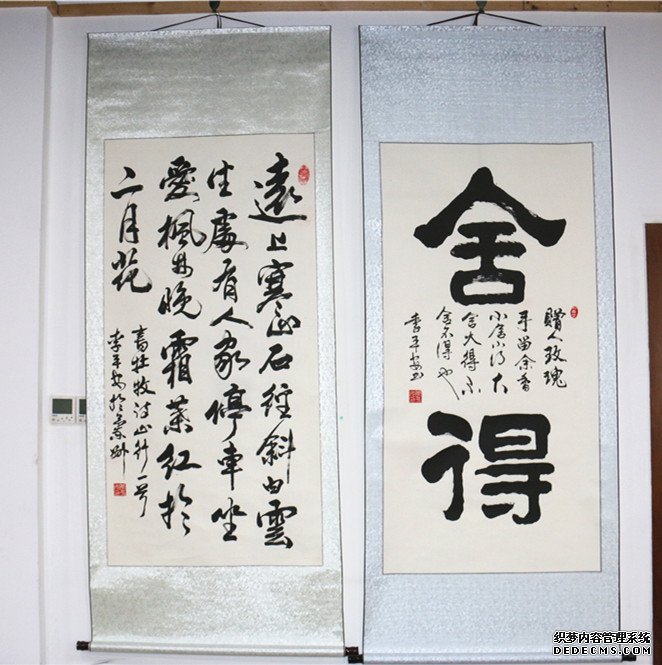 遠上寒山石徑斜白雲
生處有人家停車坐
愛楓林晚霜葉紅於
二月花
書杜牧詩山行一首
李平安於
舍得
贈人玫瑰
手留余香
小舍小得大
舍大得不
舍不得也
李平安书
织梦内容管理系统
DEDECMS.COM